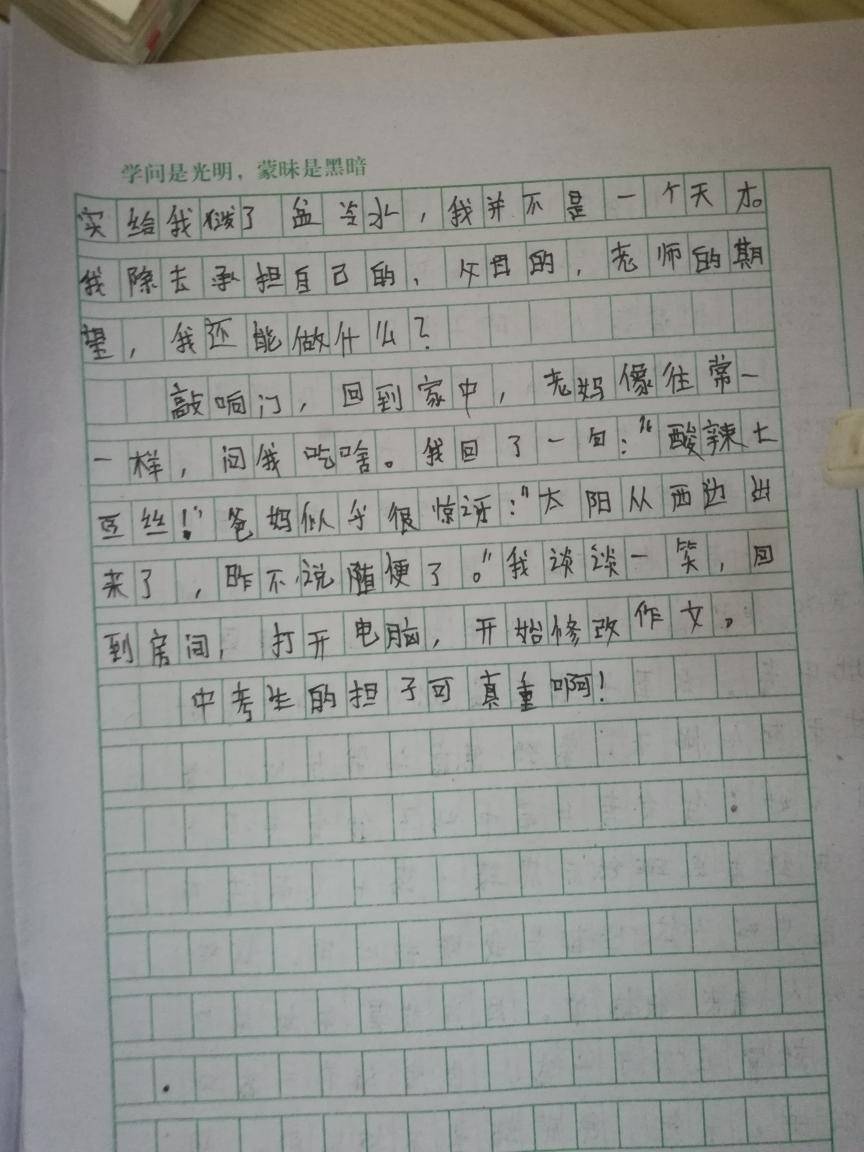 学问是光明，蒙昧是黑暗
实给我泼了盆冷水，我并不是一个天才。
我除去承担自己的、父母的，老师的期
望，我还能做什么？
敲响门，回到家中，老妈像往常一
一样，问我吃啥。我回了一句：“酸辣土
豆丝！”爸妈似乎很惊讶：“太阳从西边出
来了，咋不说随便了。”我谈谈一笑，回
到房间，打开电脑，开始修改作文。
中考生的担子可真重啊！